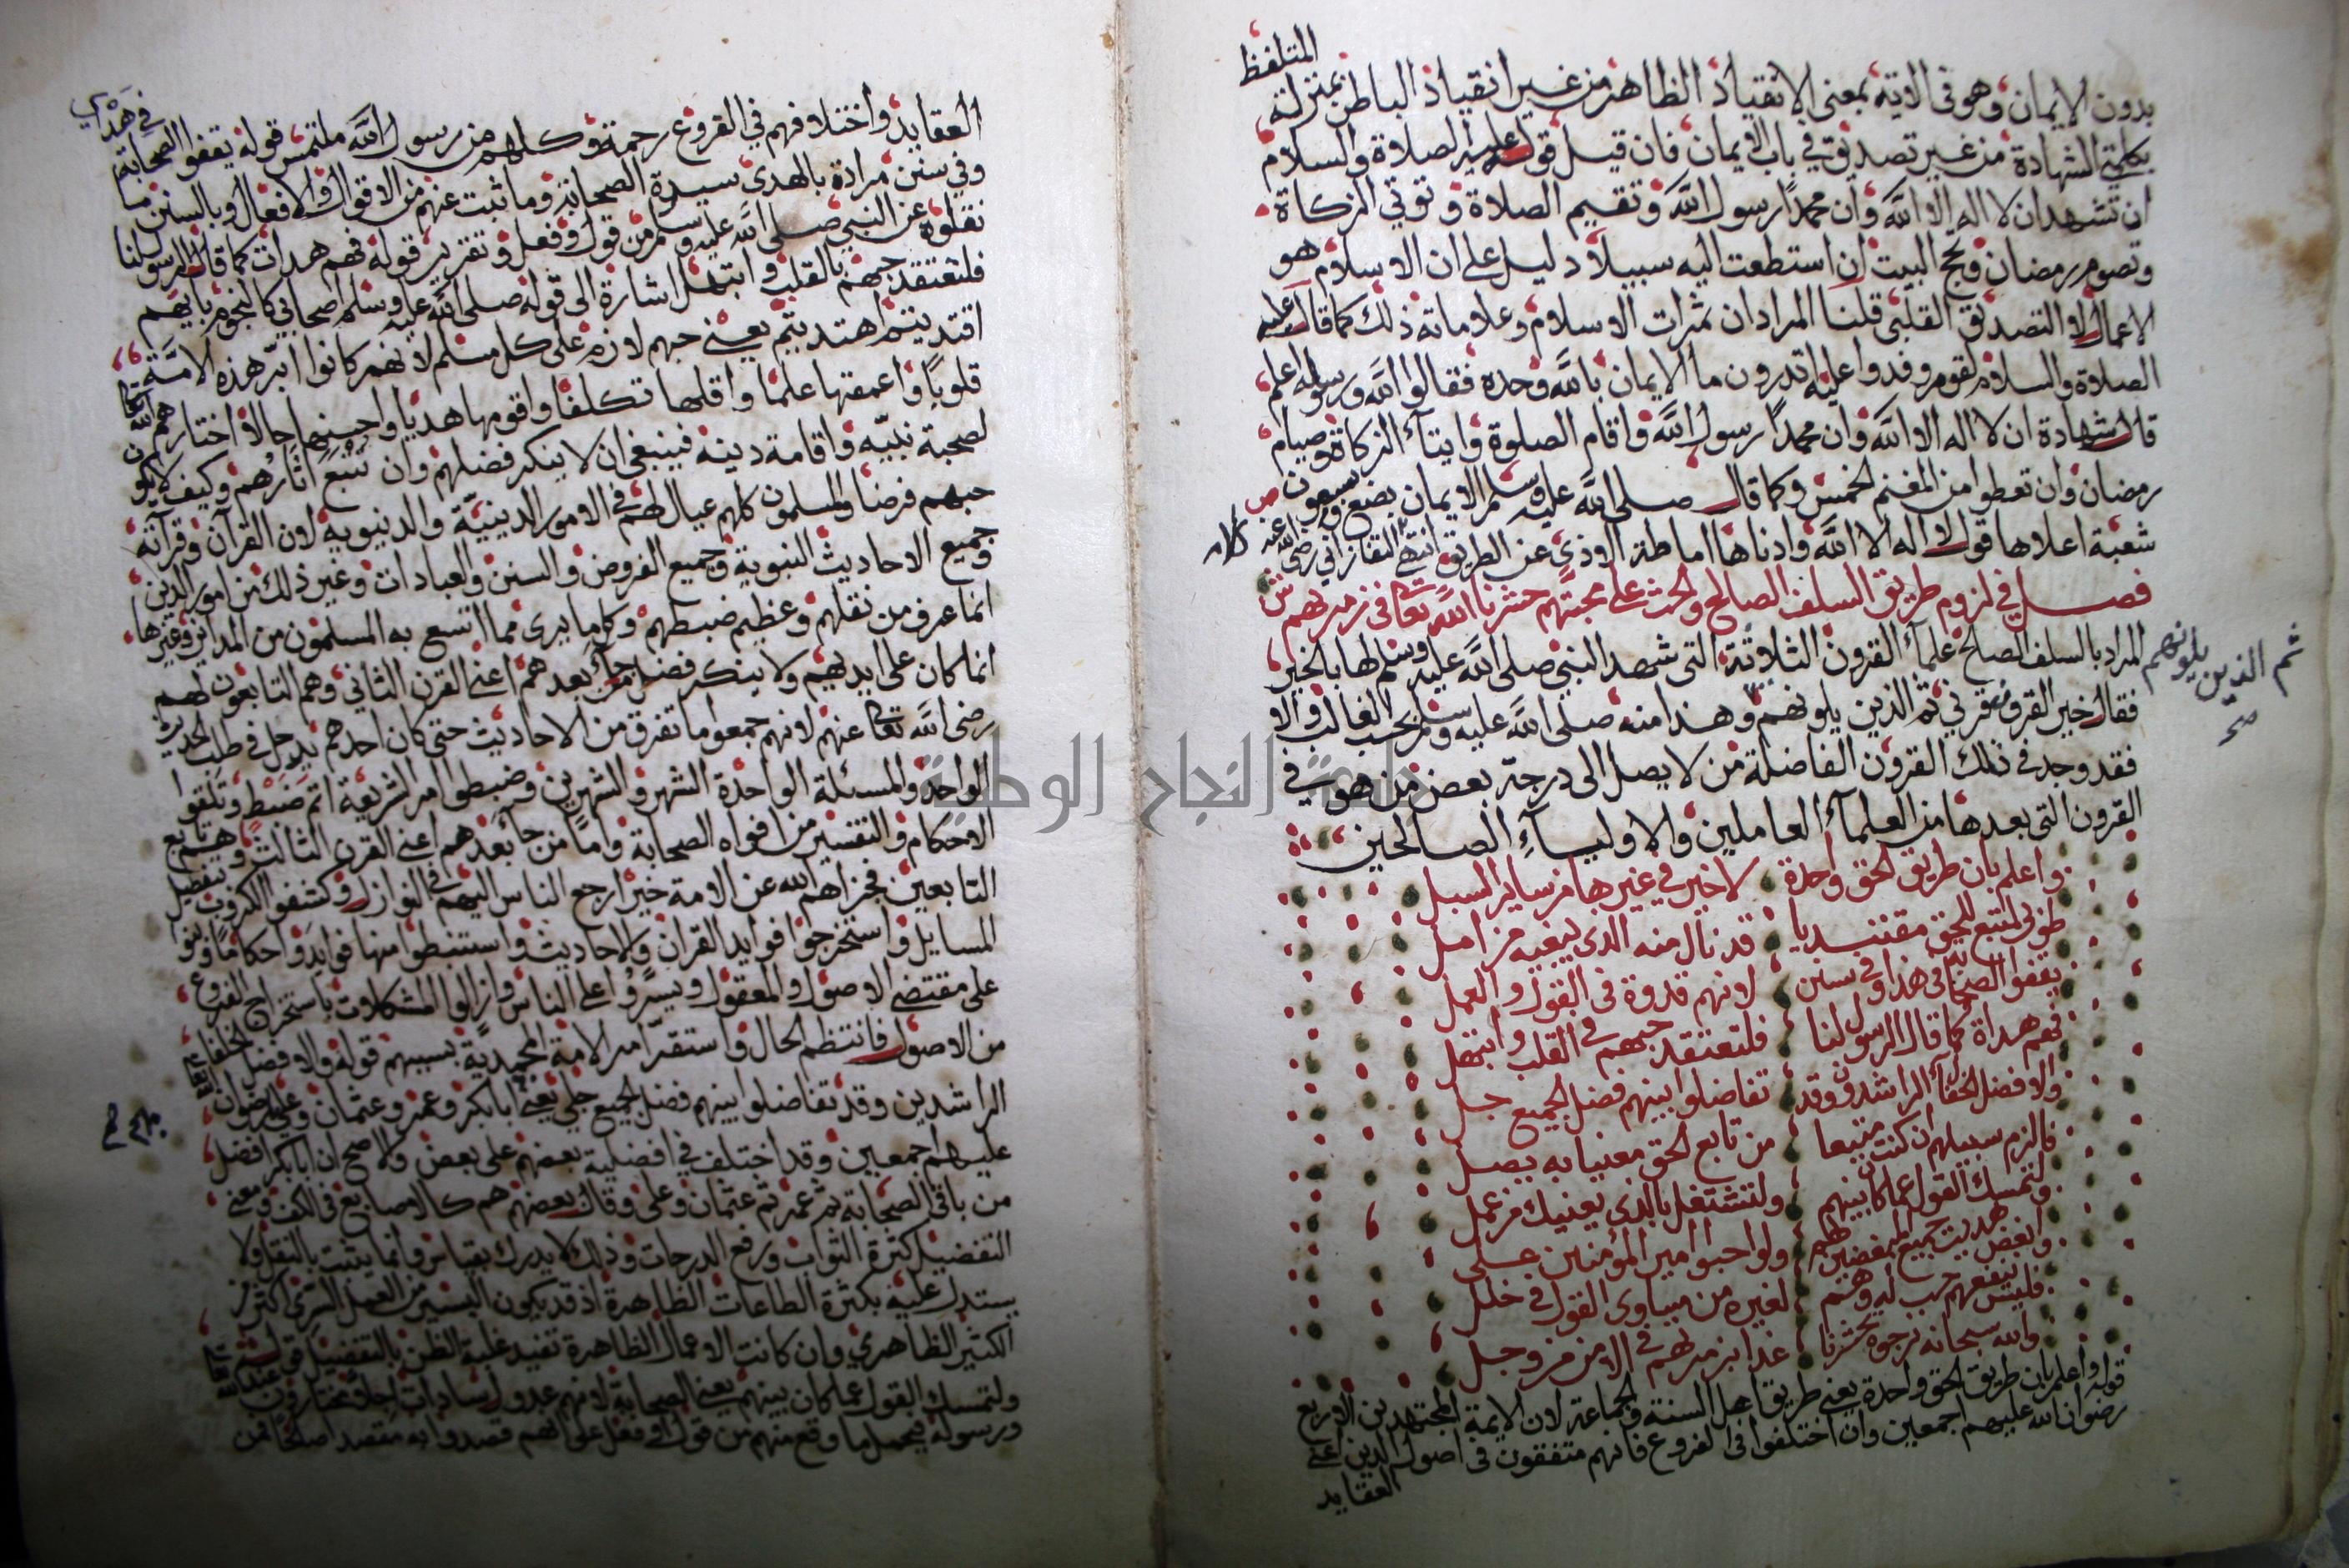 المتلفظ
بدون الايمان وهو في الاية بمعنى الانقياد الظاهر من غير انقياد الباطن بمنزلة
بكلمتي الشهادة من غير تصديق في باب الايمان فان قيل قوله عليه الصلاة والسلام
ان تشهد ان لا اله الا الله وان محمدا رسول الله وتقيم الصلاة وتوتي الزكاة
وتصوم رمضان وتحج البيت ان استطعت اليه سبيلا دليل على ان الاسلام هو
الاعمال لا التصديق القلبي قلنا المراد ان ثمرات الاسلام وعلاماته ذلك كما قال عليه
الصلاة والسلام لقوم وفدوا عليه اتدرون ما الايمان بالله وحده فقالوا الله ورسوله اعلم
قال شهادة ان لا اله الا الله وان محمدا رسول الله واقام الصلوة وايتآء الزكاة وصيام
رمضان وان تعطوا من المغنم الخمس وكما قال صلى الله عليه وسلم الايمان بضع وسبعون
شعبة اعلاها قول لا اله الا الله وادناها اماطة الاذى عن الطريق انتهى التفتازاني رضي الله عنه
فصل في لزوم طريق السلف الصالح والحث على محبتهم حشرنا الله تعالى في زمرتهم ش
المراد بالسلف الصالح علمآء القرون الثلاثة التي شهد النبي صلى الله عليه وسلم لها بالخير
فقال خير القرون قرني ثم الذين يلونهم وهذا منه صلى الله عليه وسلم بحسب الغالب والا
ثم الذين يلونهم صح
فقد وجد في تلك القرون الفاضلة من لا يصل الى درجة بعض من هو في
القرون التي بعدها من العلمآء العاملين والاوليآء الصالحين
واعلم بان طريق الحق واحدة لا خير في غيرها من ساير السبل
طوبى لمتبع للحق مقتديا قد نال منه الذي يبغيه من امل
يقفوا الصحابة في هدي وفي سنن لانهم قدوة في القول والعمل
فهم هداة كما قال الرسول لنا فلتعتقد حبهم في القلب وابتهل
والافضل الخلفآء الراشدون وقد تفاضلوا بينهم فضل الجميع جلي
فالزم سبيلهم ان كنت متبعا من تابع الحق معنيا به يصل
ولتمسك القول عما كان بينهم ولتشتغل بالذي يعنيك من عمل
وابغض هديت جميع المبغضين لهم ولو احبوا امير المؤمنين علي
فليس ينفعهم حب له وهم لغيره من مساوى القول في خلل
والله سبحانه نرجوه يحشرنا غدا بزمرتهم في الامن من وجل
قوله واعلم بان طريق الحق واحدة يعني طريق اهل السنة والجماعة لان الايمة المجتهدين الاربع
رضوان الله عليهم اجمعين وان اختلفوا في الفروع فانهم متفقون في اصول الدين اعني
العقايد
العقايد واختلافهم في الفروع رحمة وكلهم من رسول الله ملتمس قوله يقفوا الصحابة في هدي
وفي سنن مراده بالهدى سيرة الصحابة وما ثبت عنهم من الاقوال والافعال وبالسنن ما
نقلوه عن النبي صلى الله عليه وسلم من قول وفعل وتقرير قوله فهم هداة كما قال الرسول لنا
فلتعتقد حبهم بالقلب وابتهل اشارة الى قوله صلى الله عليه وسلم اصحابي كالنجوم بايهم
اقتديتم اهتديتم يعني حبهم لازم على كل مسلم لانهم كانوا ابر هذه الامة
قلوبا واعمقها علما واقلها تكلفا واقومها هديا واحسنها حالا اختارهم الله تعالى
لصحبة نبيه واقامة دينه فينبغي ان لا ينكر فضلهم وان تتبع اثارهم وكيف لا يكون
حبهم فرضا والمسلمون كلهم عيال لهم في الامور الدينية والدنيوية لان القرآن وقرآنه
وجميع الاحاديث النبوية وجميع الفروض والسنن والعبادات وغير ذلك من امور الدين
انما عرف من نقلهم وعظيم ضبطهم وكلما يرى مما اتسع به المسلمون من المداين وغيرها
انما كان على ايديهم ولا ينكر فضل من جآء بعدهم اعني القرن الثاني وهم التابعون لهم
رضي الله تعالى عنهم لانهم جمعوا ما تفرق من الاحاديث حتى كان احدهم يرحل في طلب الحديث
الواحد والمسئلة الواحدة الشهر والشهرين وضبطوا امر الشريعة اتم ضبط وتلقوا
الاحكام والتفسير من افواه الصحابة واما من جآء بعدهم اعني القرن الثالث وهم تابع
التابعين فجزاهم الله عن الامة خيرا رجع الناس اليهم في النوازل وكشفوا الكروب بتفصيل
المسايل واستخرجوا فوايد القران والاحاديث واستنبطوا منها فوايد واحكاما وبنوا
على مقتضى الاصول والمعقول ويسروا على الناس وازالوا المشكلات باستخراج الفروع
من الاصول فانتظم الحال واستقر امر الامة المحمدية بسببهم قوله والافضل الخلفا
الراشدين وقد تفاضلوا بينهم فضل الجميع جلي يعني ابا بكر وعمر وعثمان وعلي رضوان
عليهم اجمعين وقد اختلف في افضلية بعضهم على بعض والاصح ان ابا بكر افضل
من باقي الصحابة ثم عمر ثم عثمان وعلي وقال بعضهم هم كالاصابع في الكف ومعنى
التفضيل كثرة الثواب ورفع الدرجات وذلك لا يدرك بقياس وانما يثبت بالنقل ولا
يستدل عليه بكثرة الطاعات الظاهرة اذ قد يكون اليسير من العمل السري اكثر من
الكثير الظاهري وان كانت الاعمال الظاهرة تفيد غلبة الظن بالتفضيل
ولتمسك القول عما كان بينهم يعني الصحابة لانهم عدول سادات
ورسوله فيحمل ما وقع منهم من قول او فعل على انهم قصدوا به مقصدا صالحا
جامعة النجاح الوطنية